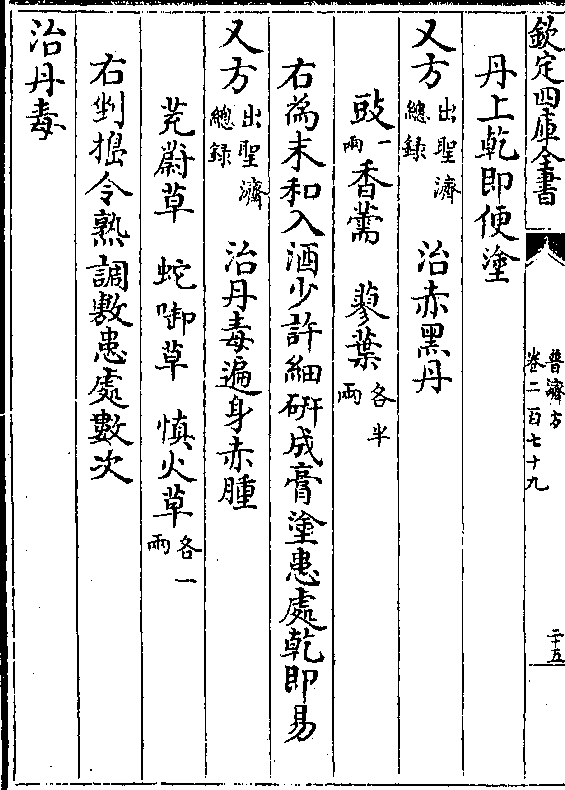 欽定四庫全書
普濟方
卷二百七十九
二十五
丹上乾即便塗
又方出聖濟總録　治赤黑丹
豉一兩香薷　蓼葉各半兩
右為末和入酒少許細研成膏塗患處乾即易
又方出聖濟總録　治丹毒遍身赤腫
茺蔚草　蛇啣草　慎火草各一兩
右剉搗令熟調敷患處數次
治丹毒